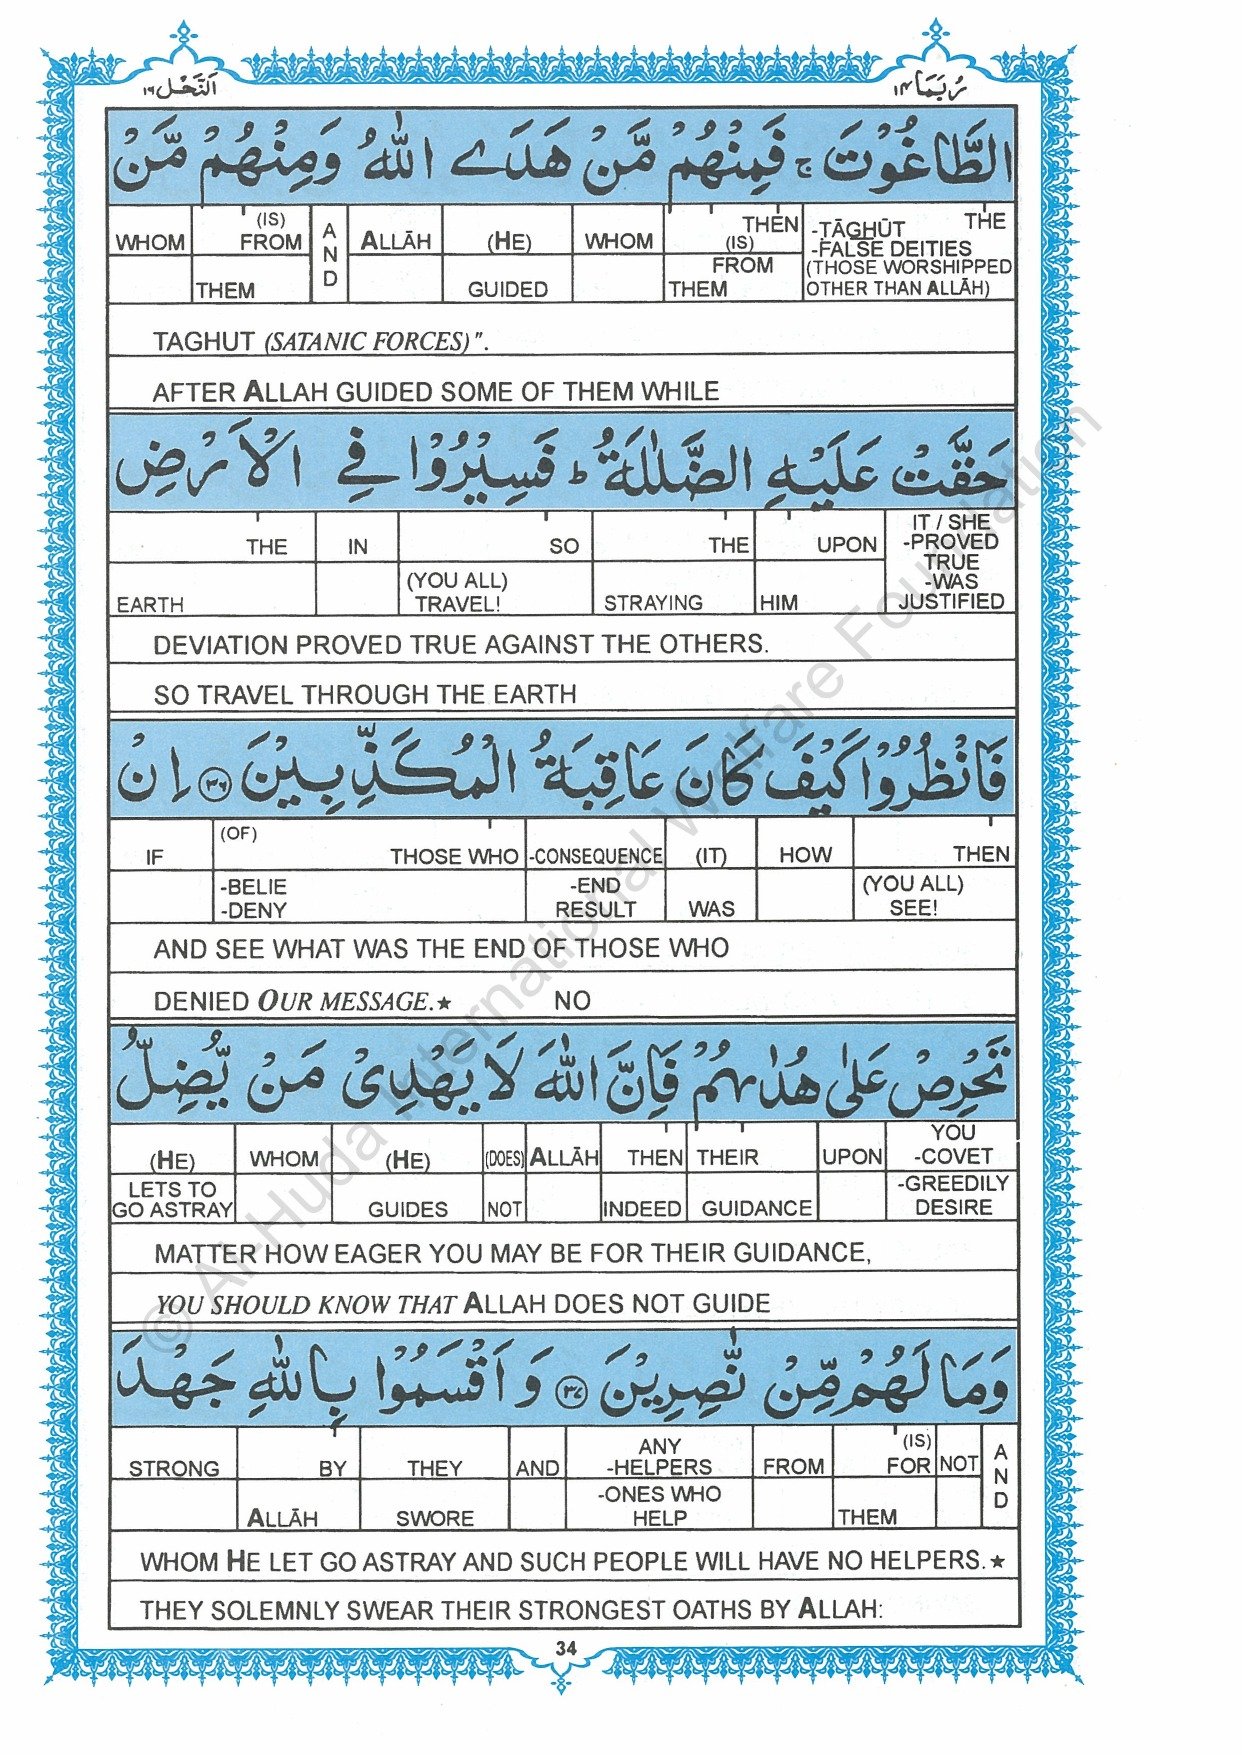 رُبَمَا ١٤
اَلنَّحْل ١٦
الطَّاغُوْتَ ۚ فَمِنْهُمْ مَّنْ هَدَى اللّٰهُ وَمِنْهُمْ مَّنْ
THE
-TĀGHŪT
-FALSE DEITIES
(THOSE WORSHIPPED
OTHER THAN ALLĀH)
THEN
(IS)
FROM
THEM
WHOM
(HE)
GUIDED
ALLĀH
AND
(IS)
FROM
THEM
WHOM
TAGHUT (SATANIC FORCES)".
AFTER ALLAH GUIDED SOME OF THEM WHILE
حَقَّتْ عَلَيْهِ الضَّلٰلَةُ ؕ فَسِيْرُوْا فِي الْاَرْضِ
IT / SHE
-PROVED
TRUE
-WAS
JUSTIFIED
UPON
HIM
THE
STRAYING
SO
(YOU ALL)
TRAVEL!
IN
THE
EARTH
DEVIATION PROVED TRUE AGAINST THE OTHERS.
SO TRAVEL THROUGH THE EARTH
فَانْظُرُوْا كَيْفَ كَانَ عَاقِبَةُ الْمُكَذِّبِيْنَ ٣٦ اِنْ
THEN
(YOU ALL)
SEE!
HOW
(IT)
WAS
-CONSEQUENCE
-END
RESULT
(OF)
THOSE WHO
-BELIE
-DENY
IF
AND SEE WHAT WAS THE END OF THOSE WHO
DENIED OUR MESSAGE.★ NO
تَحْرِصْ عَلٰى هُدٰىهُمْ فَاِنَّ اللّٰهَ لَا يَهْدِيْ مَنْ يُّضِلُّ
YOU
-COVET
-GREEDILY
DESIRE
UPON
THEIR
GUIDANCE
THEN
INDEED
ALLĀH
(DOES)
NOT
(HE)
GUIDES
WHOM
(HE)
LETS TO
GO ASTRAY
MATTER HOW EAGER YOU MAY BE FOR THEIR GUIDANCE,
YOU SHOULD KNOW THAT ALLAH DOES NOT GUIDE
وَمَا لَهُمْ مِّنْ نّٰصِرِيْنَ ٣٧ وَاَقْسَمُوْا بِاللّٰهِ جَهْدَ
AND
NOT
(IS)
FOR
THEM
FROM
ANY
-HELPERS
-ONES WHO
HELP
AND
THEY
SWORE
BY
ALLĀH
STRONG
WHOM HE LET GO ASTRAY AND SUCH PEOPLE WILL HAVE NO HELPERS.★
THEY SOLEMNLY SWEAR THEIR STRONGEST OATHS BY ALLAH:
34
© Al-Huda International Welfare Foundation